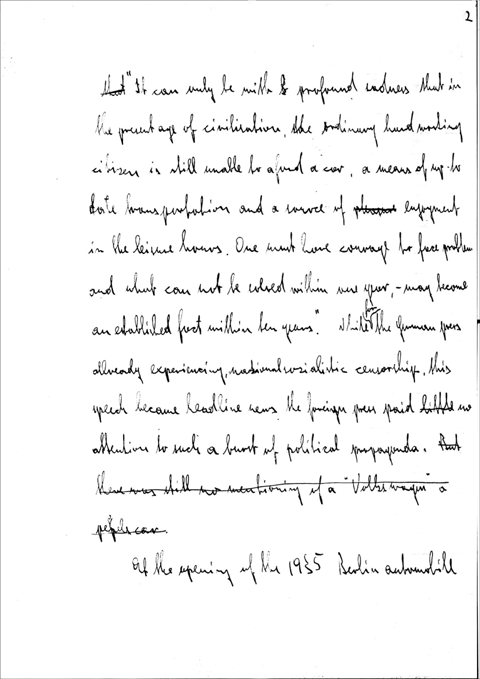 2
that "It can only be with profound sadness that in
the present age of civilisation, the ordinary hard working
citizen is still unable to aford a car, a means of up-to
date transportation and a source of enjoyment
in the leisure hours. One must have courage to face problem
and what can not be solved within one year, - may become
an established fact within ten years." While for the German press
allready experiencing, nationalsocialistic censorship, this
speech became headline news the foreign press paid little no
attention to such a burst of political propaganda. But
there was still no mentioning of a "Volkswagen" a
peoples car.
At the opening of the 1935 Berlin automobill